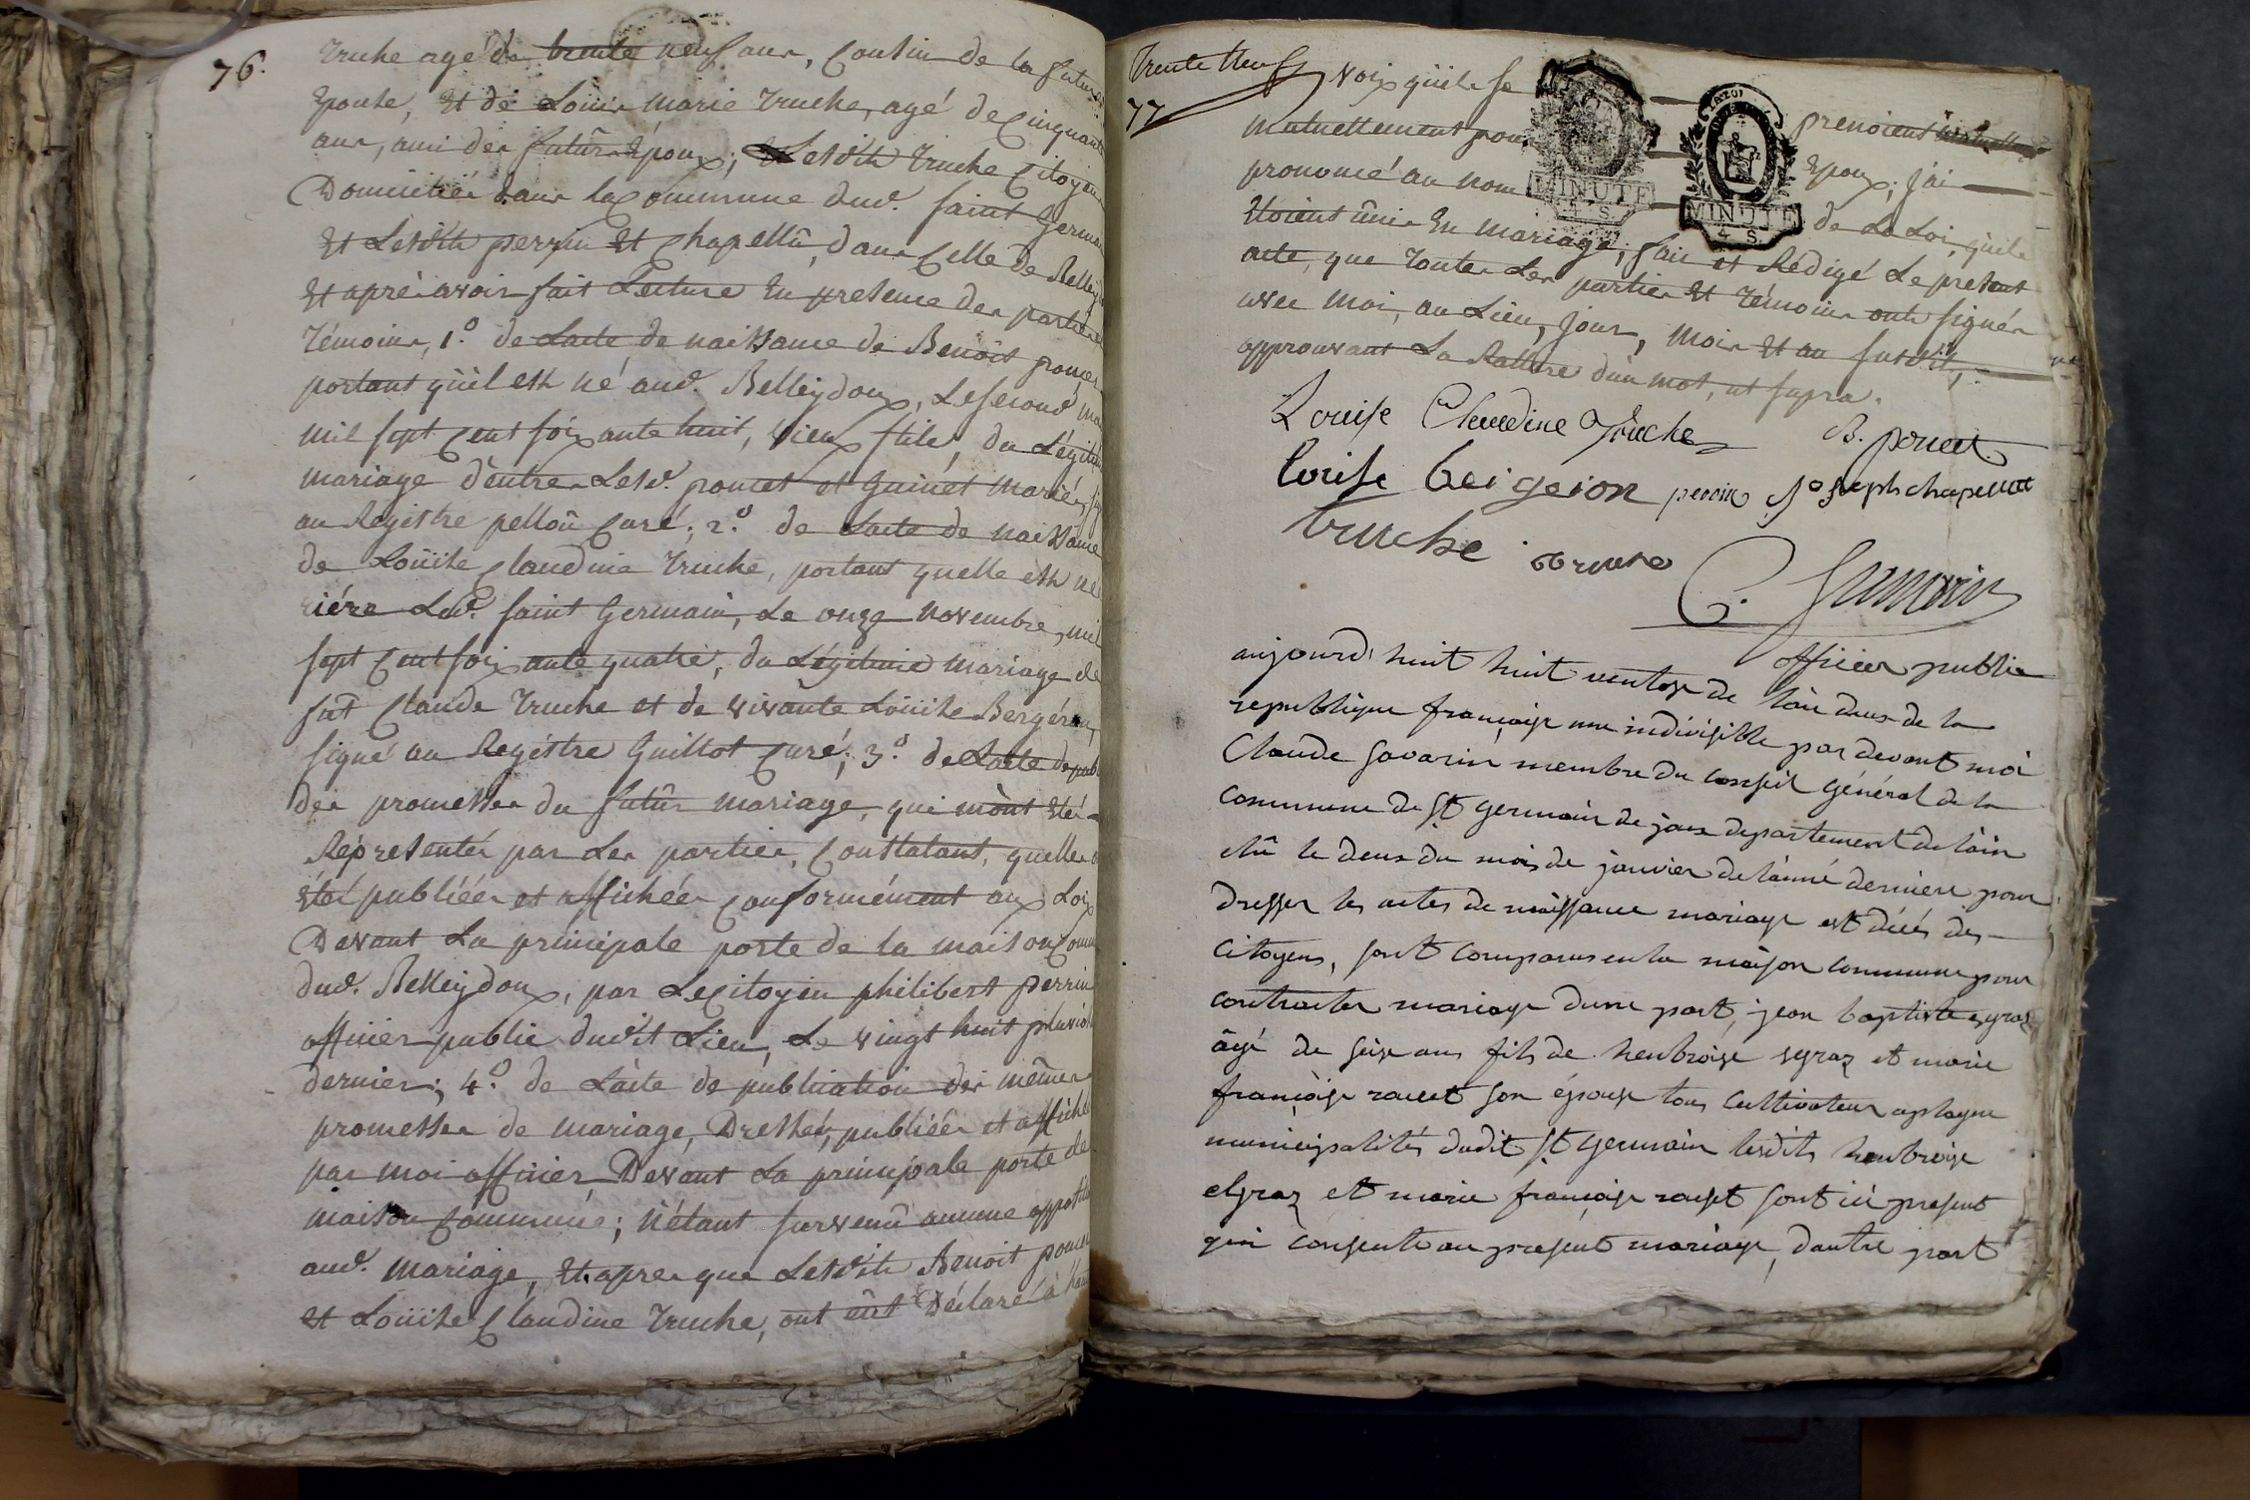 76.
truche agé de trente neuf ans, Cousin de la future
Epouse, Et de Loüis Marie truche, agé de Cinquante
ans, ami des futûrs Epoux; Lesdits truche Citoyens
Domiciliés dans la Commune dud. saint Germain
Et Lesdits perrin Et Chapellû, dans Celle de Belleydoux
Et après avoir fait Lecture En presence des parties
Témoins, 1.º de Lacte de naissance de Benoit poncet
portant qüil est né aud. Belleydoux, Le second mai
mil sept Cent soixante huit, vieux stile, du Légitime
mariage d'entre Lesd. poncet et Guinet mariés, signé
au Registre pelloû Curé; 2.º de Lacte de naissance
de Loüise Claudine truche, portant quelle est née
riére Led. saint Germain, Le onze novembre, mil
sept Cent soixante quatre, du Légitime mariage de
fût Claude truche et de vivante Loüise Bergéron,
signé au Regéstre Guillot Curé; 3.º de Lacte de pub
des promesses du futûr mariage, qui m'ont Eté
Réprésentés par Les parties, Constatant, quelles
Eté publiées et affichées Conformément aux Loix
Devant La principale porte de la maison Comm
dud. Belleydoux, par Le Citoyen philibert perrin
officier public dudit Lieu, Le vingt huit pluviôse
dernier; 4.º de Lacte de publication des mêmes
promesses de mariage, Dressés, publiées et affichées
par moi officier, Devant La principale porte de
maison Commune; n'étant survenû aucune opposition
aud. mariage, Et apres que Lesdits Benoit poncet
et Loüise Claudine truche, ont eût Déclaré à haute
trente Neuf
77
voix qüils se prenoient
mutuellement pour Epoux; j'ai
prononcé au nom de La Loi, qüils
Etoient ûnis En mariage; fait et Rédigé Le present
acte, que toutes Les parties Et témoins ont signés
avec moi, au Lieu, jour, mois Et an susdit,
approuvant La Rature d'un mot, ut supra.
MINUTE 4 S.
MINUTE 4 S
Louise Claudine truche B. poncet
louise beigeion perrin Joseph chapellut
truche truche
officier public
aujourd'huit huit ventose de l'an deux de la
republique françaije une indivisible par devant moi
Claude Savarin membre du conseil général de la
commune de St germain de joux departement de l'ain
élû le deux du mois de janvier de l'anné derniere pour
dresser les actes de naissance mariage est décés des
Citoyens, sont comparus en la maison commune pour
contracter mariage dune part, jean baptiste egraz
âgé de seize ans fils de henbroise egraz et marie
françaije rouet son épouse tous cultivateur a plagne
municipalités dudit St germain lesdits henbroise
egraz et marie françaije rouset sont ici present
qui consente au present mariage, dautre part